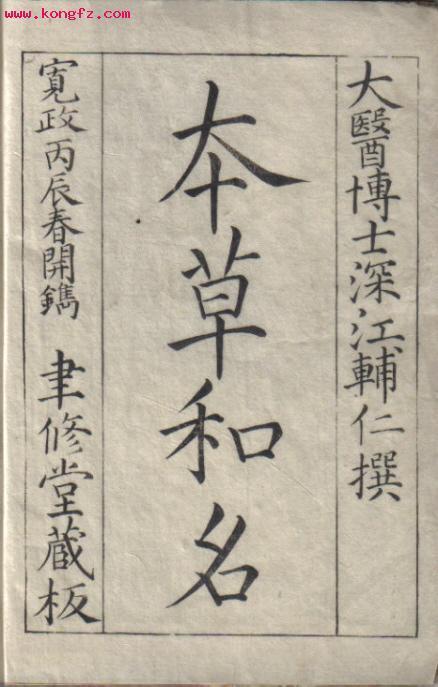 www.kongfz.com
大醫博士深江輔仁撰
本草和名
寬政丙辰春開鐫 聿修堂蔵板